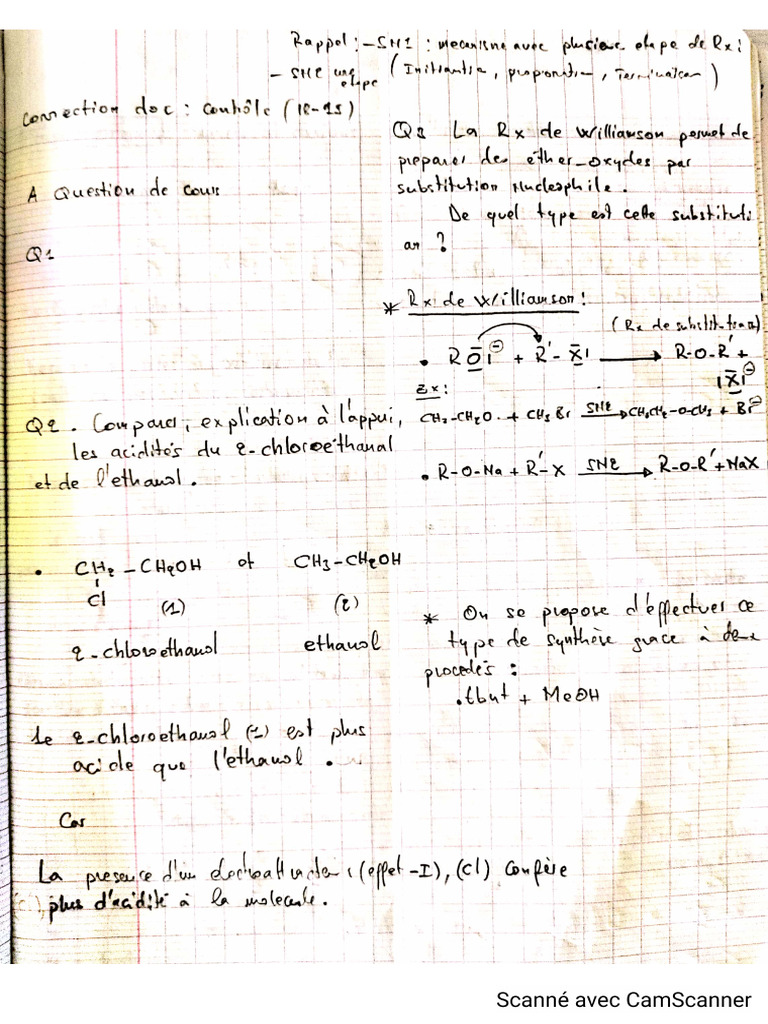 Rappel : - SN1 : mecanisme avec plusieurs etape de Rx :
- SN2 une etape (Initiation, propagation, Terminaison)
Correction doc : Contrôle (18-19)
A Question de cours
Q1
Q2. Comparer, explication à l'appui,
les acidités du 2-chloroéthanol
et de l'ethanol.
• CH2-CH2OH et CH3-CH2OH
Cl
(1) (2)
2-chloroethanol ethanol
Le 2-chloroethanol (1) est plus
acide que l'ethanol.
Car
La presence d'un electroattracteur (effet -I), (Cl) confère
plus d'acidité à la molecule.
Q3 La Rx de Williamson permet de
preparer des éther-oxydes par
substitution Nucleophile.
De quel type est cette substituti
on ?
* Rx de Williamson :
(Rx de substitution)
• R O| ⊖ + R'-X| → R-O-R' +
|X|⊖
Ex :
CH3-CH2O + CH3Br SN2→ CH3CH2-O-CH3 + Br⊖
• R-O-Na + R'-X SN2→ R-O-R' + NaX
* On se propose d'effectuer ce
type de synthèse grace à deux
procedés :
. tbut + MeOH
Scanné avec CamScanner